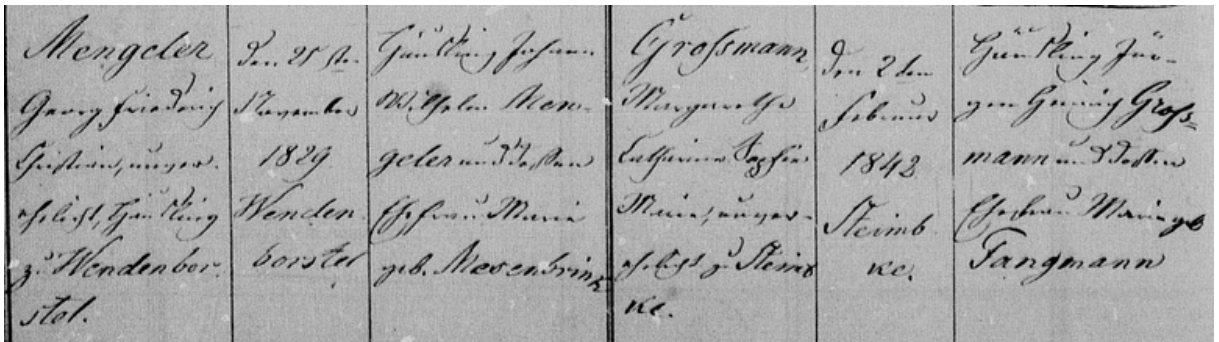 Mengeler
Georg Friedrich
Christian, unver-
ehelicht, Häusling
zu Wendenbor-
stel.
den 25 sten
November
1829
Wenden
borstel
Häusling Johann
Wilhelm Men-
geler und dessen
Ehefrau Marie
geb. Mesenbrink
Grossmann
Margarethe
Catharine Sophie
Marie, unver-
ehelicht zu Steimb
ke.
den 2 ten
Februar
1842
Steimb
ke.
Häusling Jür-
gen Heinrich Gross=
mann und dessen
Ehefrau Marie geb
Tangmann